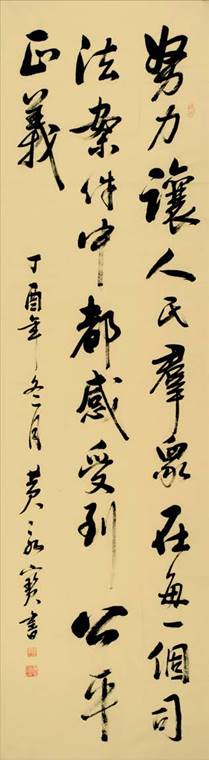 努力讓人民羣眾在每一個司
法案件中都感受到公平
正義
丁酉年冬月黄永寶書